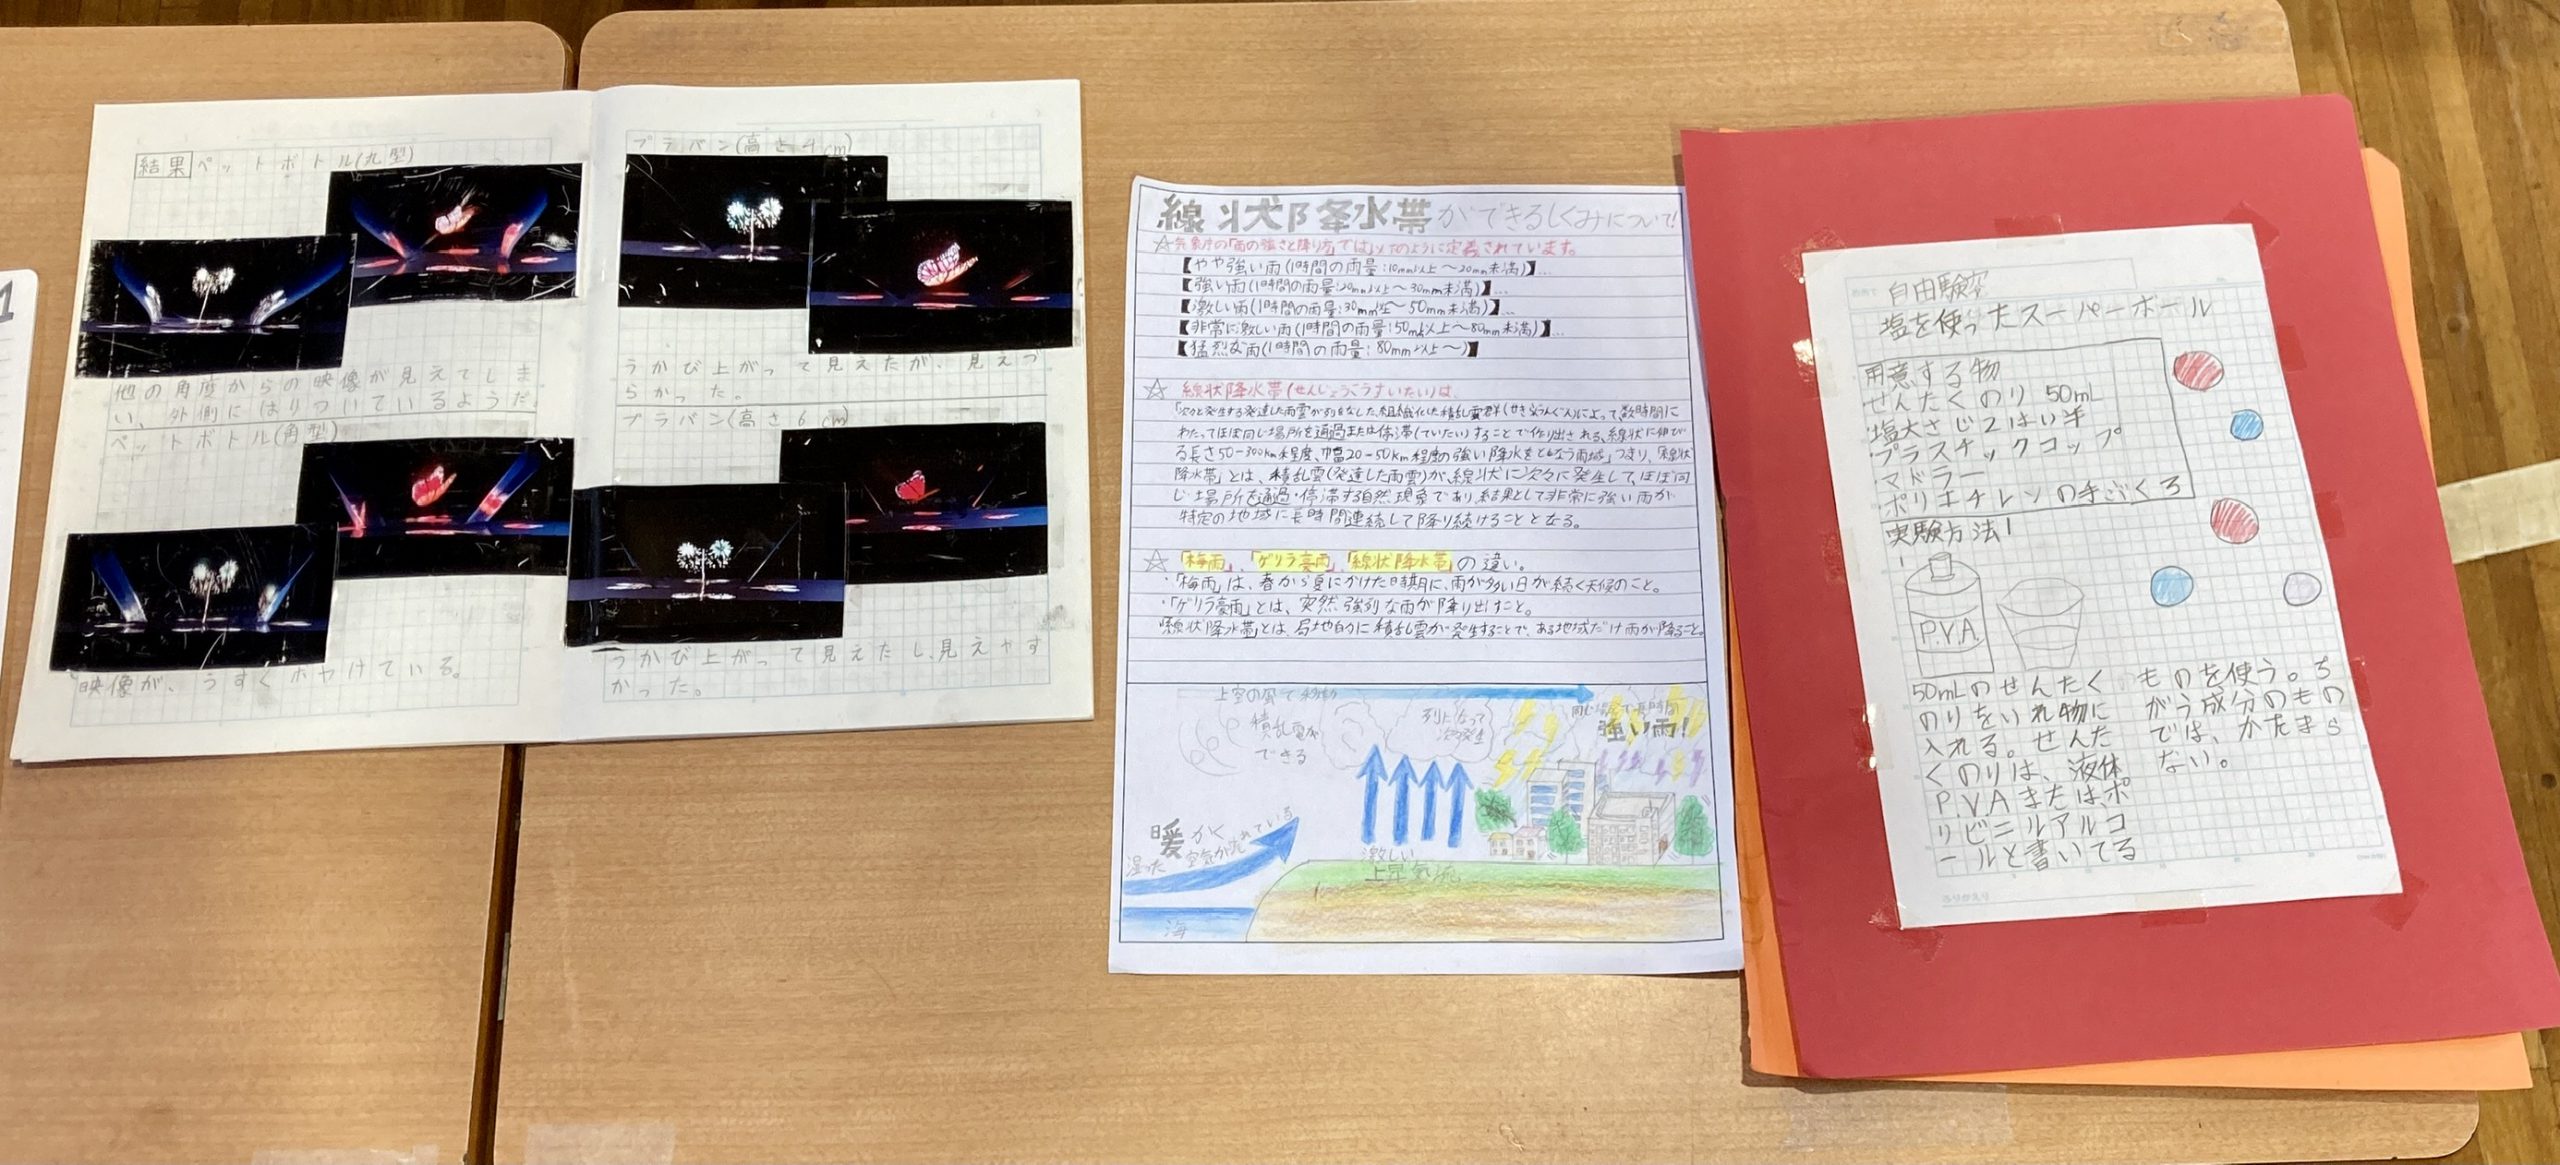 1
結果 ペットボトル(丸型)
他の角度からの映像が見えてしま
い、外側にはりついているようだ。
ペットボトル(角型)
映像が、うすくボヤけている。
プラバン(高さ4cm)
うかび上がって見えたが、見えづ
らかった。
プラバン(高さ6cm)
うかび上がって見えたし、見えやす
かった。
線状降水帯ができるしくみについて!
☆気象庁の「雨の強さと降り方」では以下のように定義されています。
【やや強い雨(1時間の雨量:10mm以上〜20mm未満)】…
【強い雨(1時間の雨量:20mm以上〜30mm未満)】…
【激しい雨(1時間の雨量:30mm以上〜50mm未満)】…
【非常に激しい雨(1時間の雨量:50mm以上〜80mm未満)】…
【猛烈な雨(1時間の雨量:80mm以上〜)】
☆ 線状降水帯(せんじょうこうすいたい)は、
「次々と発生する発達した雨雲が列をなした、組織化した積乱雲群(せきらんうんぐん)によって、数時間に
わたってほぼ同じ場所を通過または停滞(ていたい)することで作り出される、線状に伸び
る長さ50-300km程度、幅20-50km程度の強い降水をともなう雨域」つまり、「線状
降水帯」とは、積乱雲(発達した雨雲)が、線状に次々に発生して、ほぼ同
じ場所を通過・停滞する自然現象であり、結果として非常に強い雨が
特定の地域に長時間連続して降り続けることとなる。
☆「梅雨」、「ゲリラ豪雨」、「線状降水帯」の違い。
・「梅雨」は、春から夏にかけた時期に、雨が多い日が続く天候のこと。
・「ゲリラ豪雨」とは、突然強烈な雨が降り出すこと。
・「線状降水帯」とは、局地的に積乱雲が発生することで、ある地域だけ雨が降ること。
上空の風で移動
積乱雲が
できる
列になって
次々発生
同じ場所で長時間
強い雨!
暖かく
湿った
空気が流れている
激しい
上昇気流
海
自由験究
塩を使ったスーパーボール
用意する物
せんたくのり 50mL
・塩大さじ2はい半
・プラスチックコップ
・マドラー
・ポリエチレンの手ぶくろ
実験方法1
P.V.A.
50mLのせんたく
のりをいれ物に
入れる。せんた
くのりは、液体
P.V.Aまたは、ポ
リビニルアルコ
ールと書いてる
ものを使う。ち
がう成分のもの
では、かたまら
ない。